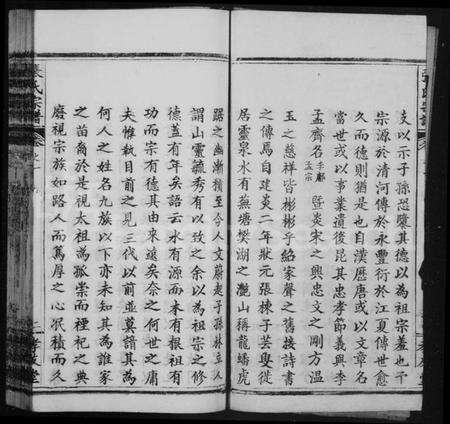 支以示子孫恐隳其德以為祖宗羞也干
宗源於清河傳於永豐衍於江夏傳世愈
久而德則猶是也自漢歷唐或以文章名
當世或以事業遺後昆其忠孝節義與李
孟齊名 暨炎宋之興忠文之剛方溫
玉之慈祥皆彬彬乎紹家聲之舊接詩書
之傳焉自建炎二年狀元張棟子芸叟徙
居靈泉水有蕪塘樊湖之灘山稱龍蟠虎
踞之幽漸增至今人文蔚起子孫林立人
謂山靈毓秀有以致之余以為祖宗之修
德蓋有年矣語云水有源而木有根祖有
功而宗有德其由來遠矣奈之何世之庸
夫惟執目前之見三代以前並莫譜其為
何人之姓名九族以下亦未知其為誰家
之苗裔於是視太祖為孤祟而禋祀之典
廢視宗族如路人而篤厚之心泯積而久
張氏宗譜